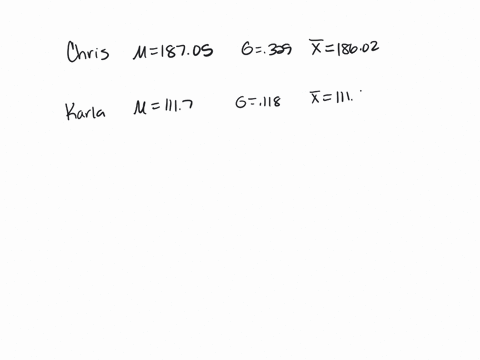 Chris μ=187.05 σ=.329 x̄=186.02
Karla μ=111.7 σ=.118 x̄=111.